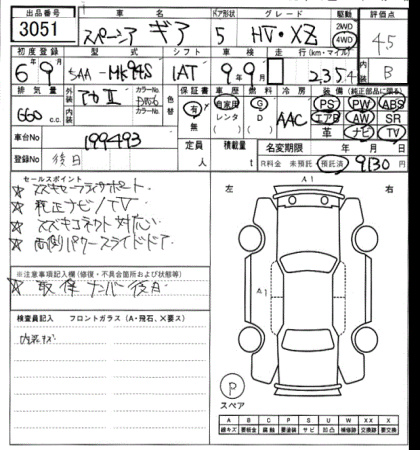 出品番号 車名 ドア形状 グレード 駆動 評価点
3051 スペーシア ギア 5 HV・XZ 2WD 4WD 4.5
初度登録 型式 シフト 車検 走行(km・マイル) 内装
6年9月 5AA-MK94S IAT 9年9月 2,354 B
排気量 外装 カラーNo. 色替 保証書 車歴 燃料 冷房 装備(純正部品に限る)
660 c.c. 内装 カラーNo. 有・無 自家用 レンタ G D AAC PS PW ABS
エアB AW SR
革 ナビ TV
車台No 199493 乗車定員 人 積載量 t 名変期限 年 月
登録No 後日 R料金 未預託 預託済 9130
セールスポイント
☆ スズキセーフティサポート
☆ 純正ナビ/TV
☆ スズキコネクト対応
☆ 両側パワースライドドア
※注意事項記入欄(修復・不具合箇所および状態等)
☆ 取保ナンバー後日
検査員記入 フロントガラス(A・飛石、X要ス)
内装キズ
左 A1 右
A1
P
スペア
A B C P S U W XX X
線キズ 要板金 腐触 要塗装 サビ 凹凸 補修跡 交換跡 要交換